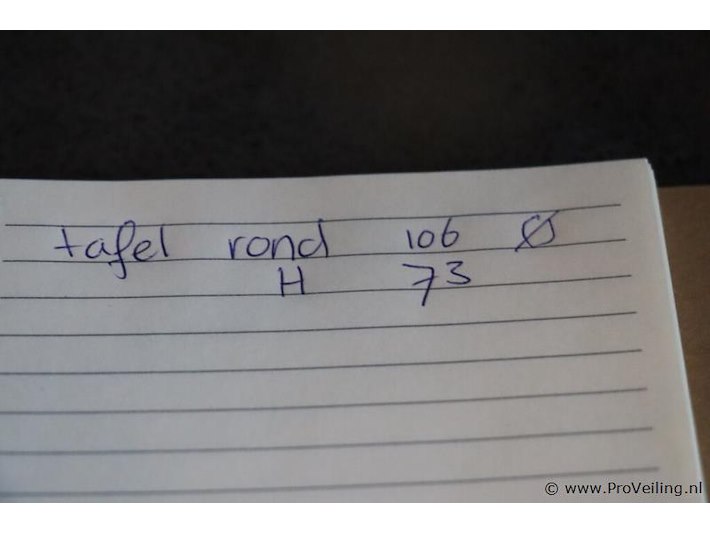 tafel rond 106 Ø
H 73
© www.ProVeiling.nl